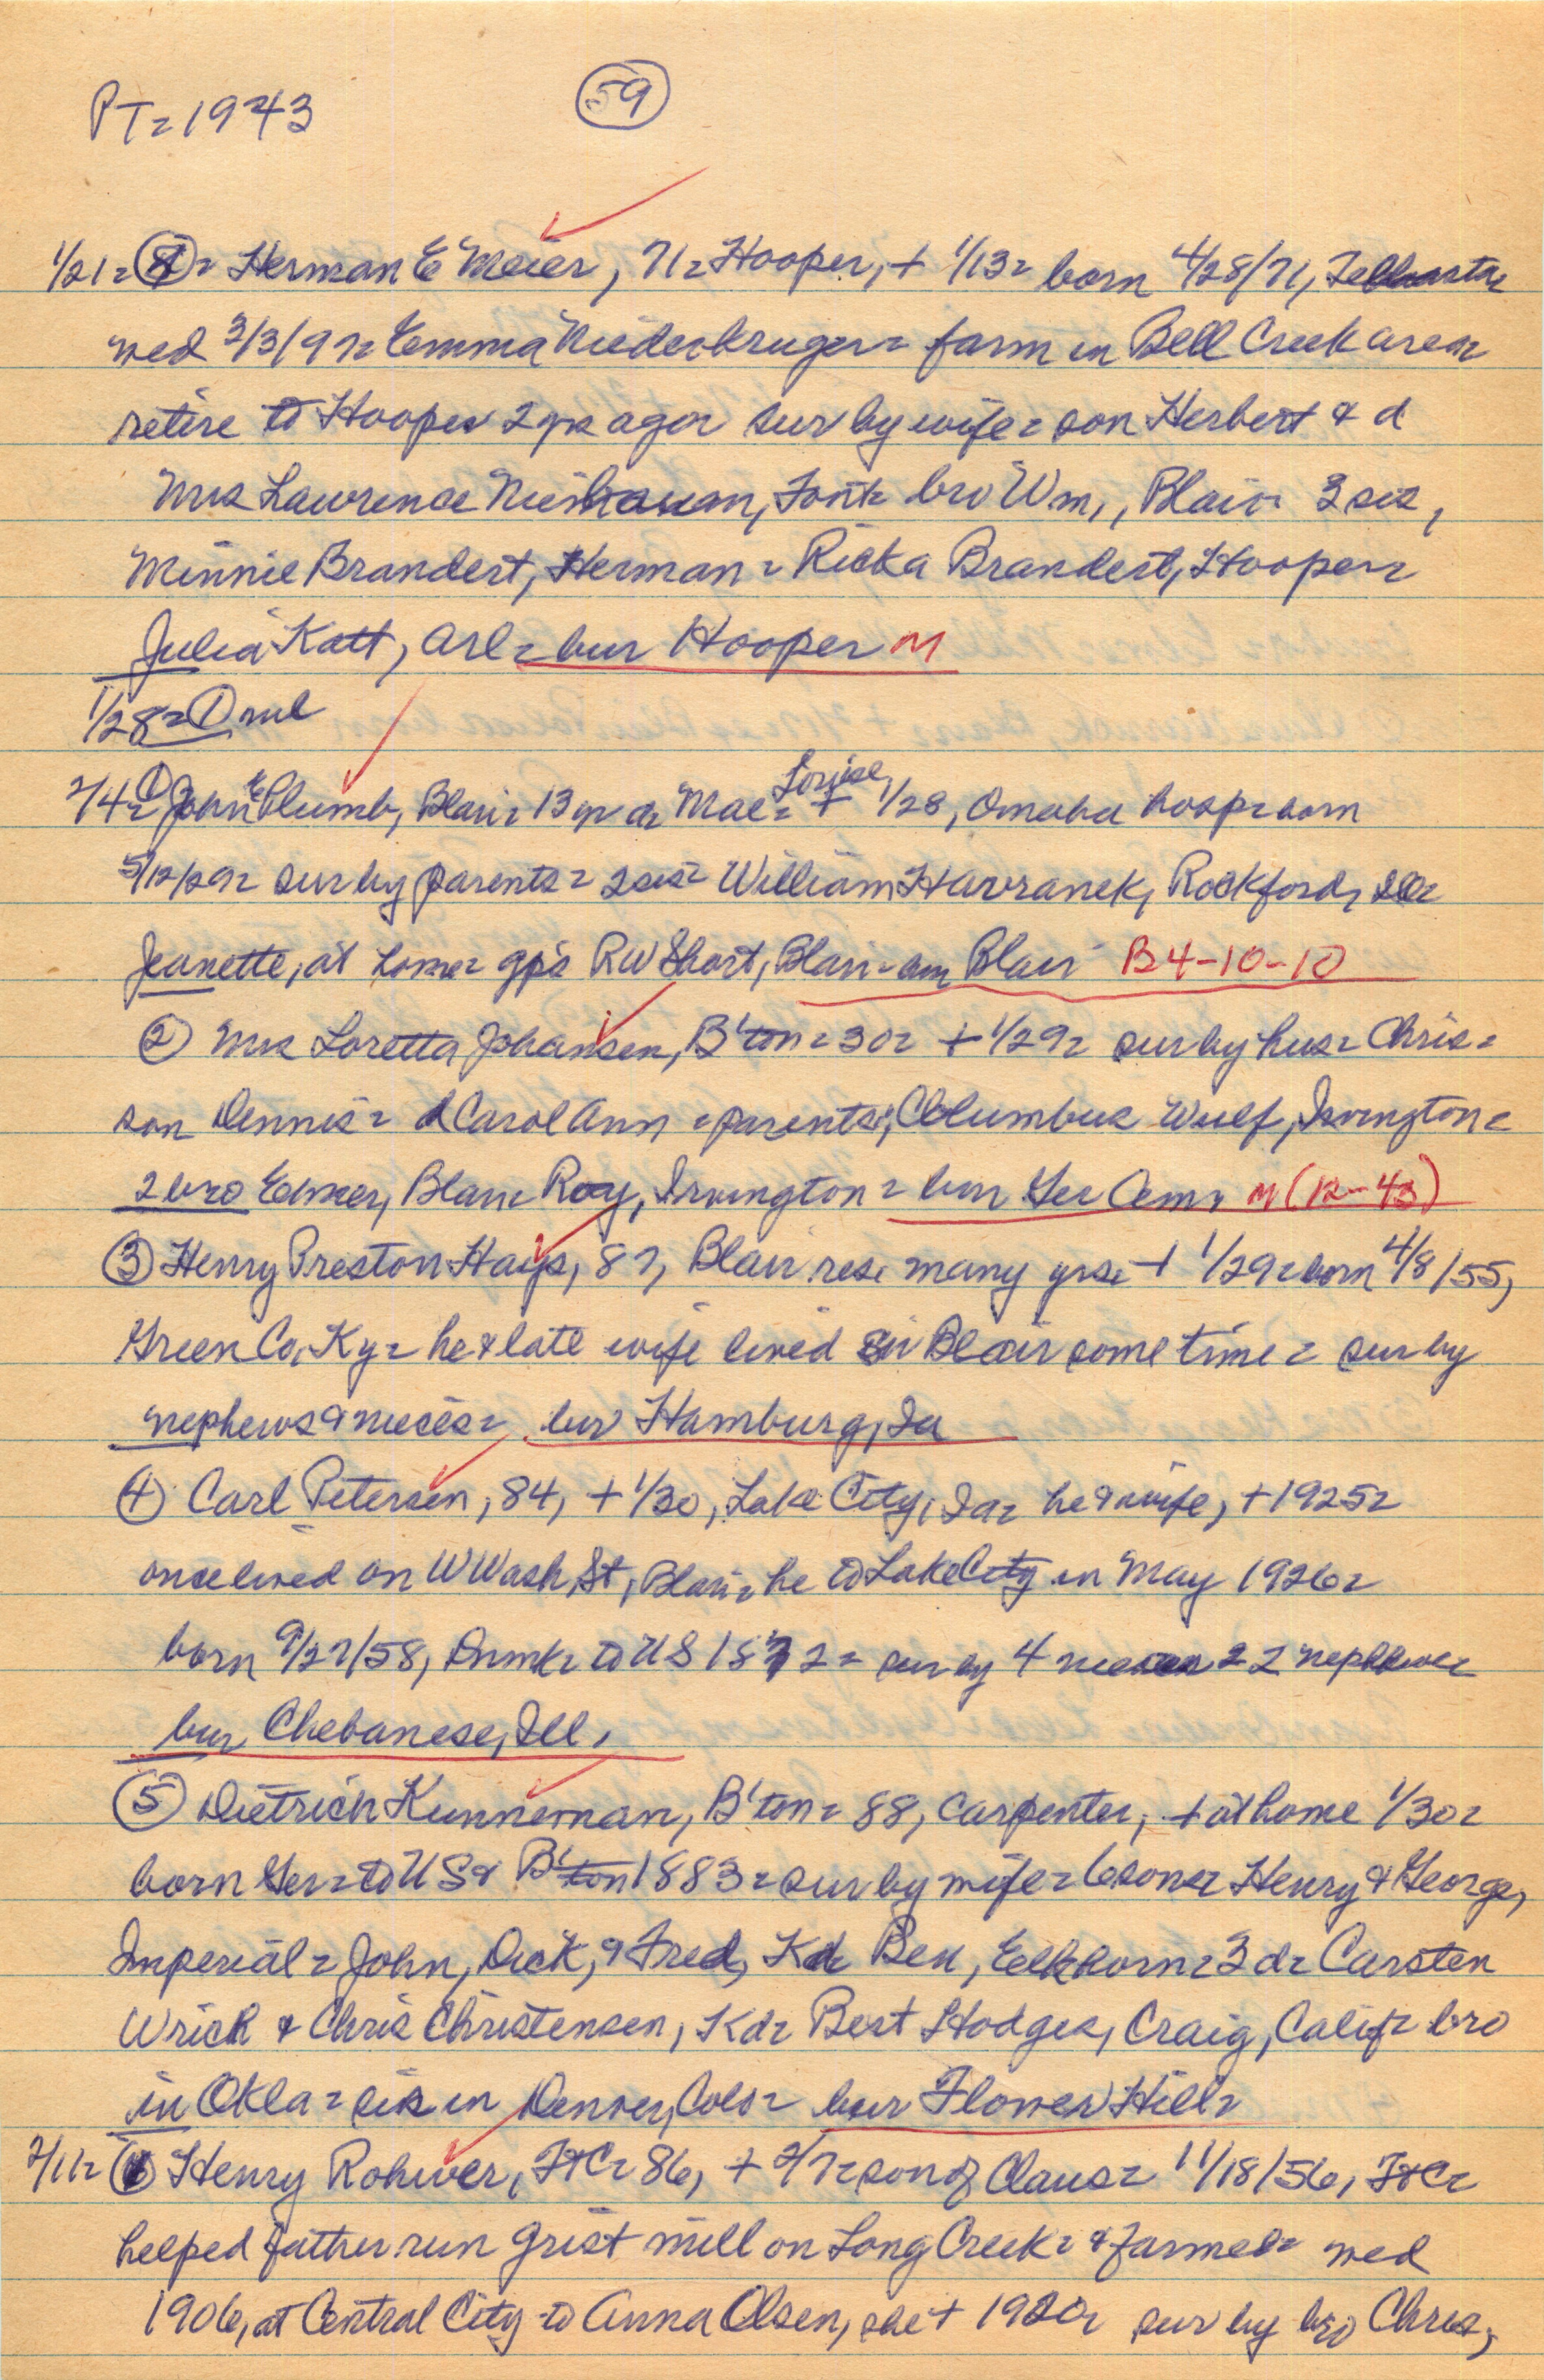 PT= 1943
59
1/21= 8= Herman E Meier, 71= Hooper, + 1/13= born 4/28/71,
wed 3/3/97= Emma Niederkruger= farm in Bell Creek area=
retire to Hooper 2 yrs ago= sur by wife= son Herbert & d
Mrs Lawrence, Font= bro Wm,, Blair= 3 sis,
Minnie Brandert, Herman= Ricka Brandert, Hooper=
Julia Katt, Arl= bur Hooper M
1/28= 1 rul
Louise,
2/4= 1 John E Plumb, Blair= 13 yr d= Mae= + 1/28, Omaha hosp= born
5/12/29= sur by parents= 2 sis= William Havranek, Rockford, Ill=
Jeanette, at home= gps RW Short, Blair= Blair B4-10-10
2 Mrs Loretta Johansen, B'ton= 30= + 1/29= sur by hus= Chris=
son Dennis= d Carol Ann= parents, Columbus Wulf, Irvington=
2 bro Elmer, Blair= Roy, Irvington= bur Ger Cem, M (12-43)
3 Henry Preston Hays, 87, Blair res. many yrs= + 1/29= born 4/8/55,
Green Co, Ky= he & late wife lived in Blair some time= sur by
nephews & nieces= bur Hamburg, Ia
4 Carl Petersen, 84, + 1/30, Lake City, Ia= he & wife, + 1925=
once lived on W Wash, St, Blair= he to Lake City in May 1926=
born 9/27/58, Dnmk= to US 1872= sur by 4 nieces 22 nephews=
bur, Chebanese, Ill.
5 Dietrich Kunneman, B'ton= 88, carpenter, + at home 1/30=
born Ger= to US & B'ton 1883= sur by wife= 6 sons= Henry & George,
Imperial= John, Dick, & Fred, Kd= Ben, Elkhorn= 3 d= Carsten
Wrich & Chris Christensen, Kd= Bert Hodges, Craig, Calif= bro
in Okla= sis in Denver, Colo= bur Flower Hill=
2/11= 1 Henry Rohwer, Ft C= 86, + 2/7= son of Claus= 11/18/56, Ft C=
helped father run grist mill on Long Creek= & farmed= wed
1906, at Central City to Anna Olsen, she + 1920= sur by bro Chris,